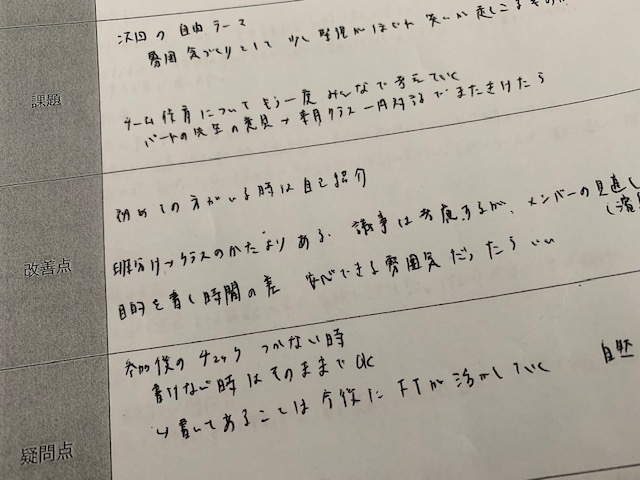 課題
次回の自由テーマ
雰囲気づくりとして 少し緊張がほぐれ 笑いが起こるもの
チーム保育について もう一度 みんなで考えていく
パートの先生の意見→ 1対1 でまたきけたら
改善点
初めての方がいる時は自己紹介
班分け→クラスのかたよりある、議事は考慮するが、メンバーの見直し
目的を書く時間の差 安心できる雰囲気だったらいい
疑問点
参加後のチェック つかない時
書けない時はそのままでOK
↳書いてあることは今後にFTが活かしていく 自然